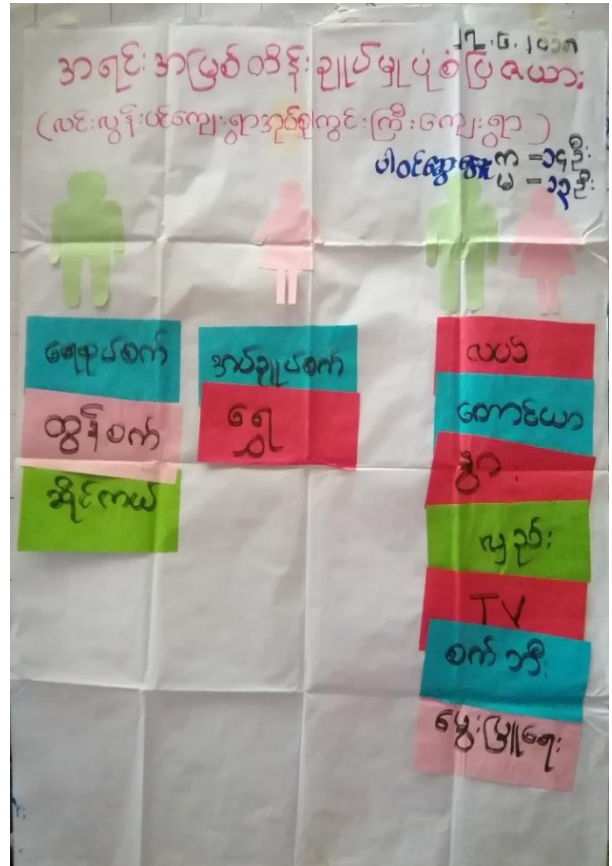 ၂၇.၆.၂၀၁၈
အရင်းအမြစ်ထိန်းချုပ်မှုပုံစံပြဇယား
(လင်းလွန်းပင်ကျေးရွာအုပ်စုကွင်းကြီးကျေးရွာ)
ပါဝင်ဆွေးနွေးသူ ကျား = ၁၄ဦး
မ = ၁၃ဦး
ရေစုပ်စက်
ထွန်စက်
ဆိုင်ကယ်
အပ်ချုပ်စက်
ရွှေ
လယ်
တောင်ယာ
နွား
လှည်း
TV
စက်ဘီး
မွေးမြူရေး